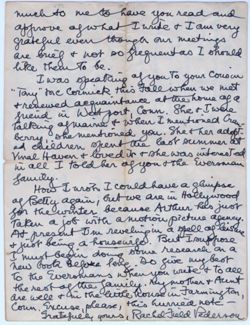 much to me to have you read and
approve of what I write & I am very
grateful even though our meetings
are brief & not as frequent as I should
like them to be.
I was speaking of you to your cousin
"Tary" Mc Cormick this Fall when we met
& renewed acquaintance at the home of a
friend in Westport Conn. She & I were
talking of Maine & when I mentioned Cran-
berry she mentioned you. She & her adopt-
ed children spent the last summer at
Vinal Haven & loved it & she was interested
in all I told her of you & the
family.
How I wish I could have a glimpse
of Betty again, but we are in Hollywood
for the winter because Arthur has just
taken a job with a motion picture agency.
At present I'm revelling in a spell of leisure
& just being a housewife. But I suppose
I must begin doing some research on a
new book before long. So give my best
to the Eversmans when you write & to all
the rest of the family. My mother & Aunt
are well & in the little house in Farmington
Conn. Excuse, please, this hurried note—
Gratefully yours, Rachel Field Pederson